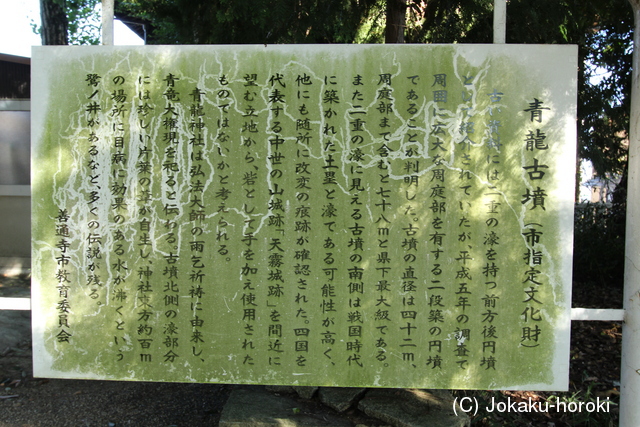 青龍古墳(市指定文化財)
には二重の濠を持つ前方後円墳
と されていたが、平成五年の調査で
周囲に広大な周庭部を有する二段築の円墳
であることが判明した。古墳の直径は四十二m、
周庭部まで含むと七十八mと県下最大級である。
また二重の濠に見える古墳の南側は戦国時代
に築かれた土塁と濠である可能性が高く、
他にも随所に改変の痕跡が確認された。四国を
代表する中世の山城跡「天霧城跡」を間近に
望む立地から砦として手を加え使用された
ものではないかと考えられる。
青龍神社は弘法大師の雨乞祈祷に由来し、
青竜大権現を祀ると伝わる。古墳北側の濠部分
には珍しい片葉の葦が自生し、神社東方約百m
の場所に目病に効果のある水が沸くという
鷺ノ井があるなど、多くの伝説が残る。
善通寺市教育委員会
(C) Jokaku-horoki